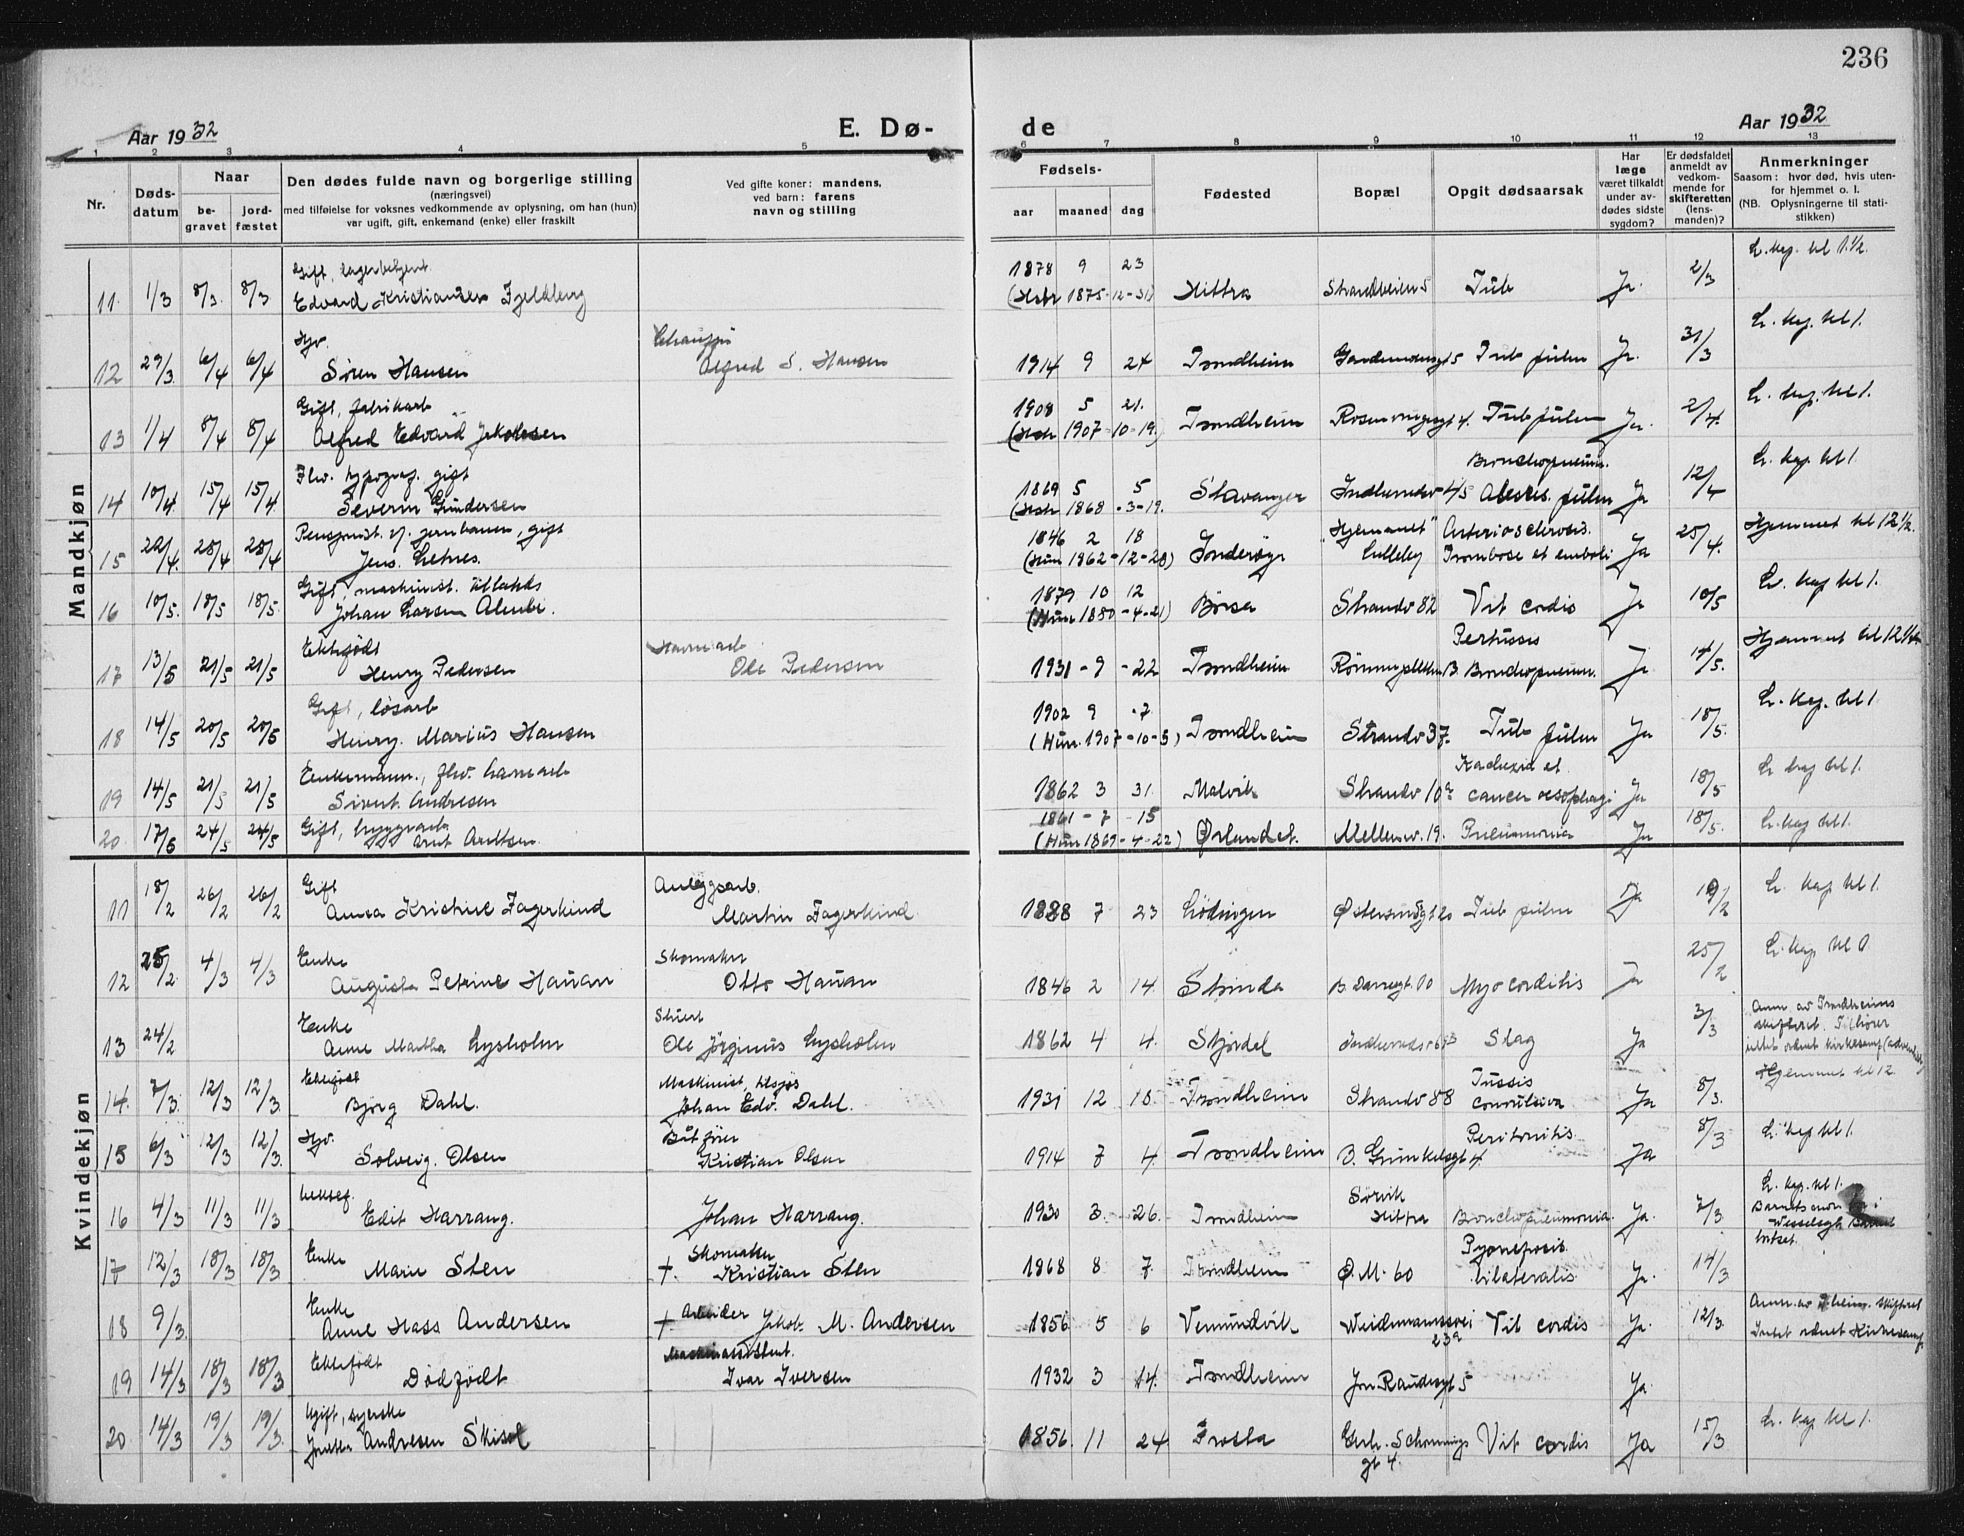 236
Aar 1932 E. Dø- de Aar 1932
1 2 3 4 5 6 7 8 9 10 11 12 13
Nr.
Døds-
datum
Naar
be-
gravet
jord-
fæstet
Den dødes fulde navn og borgerlige stilling
(næringsvei)
med tilføielse for voksnes vedkommende av oplysning, om han (hun)
var ugift, gift, enkemand (enke) eller fraskilt
Ved gifte koner: mandens,
ved barn: farens
navn og stilling
Fødsels-
aar maaned dag
Fødested
Bopæl
Opgit dødsaarsak
Har
læge
været tilkaldt
under av-
dødes sidste
sygdom?
Er dødsfaldet
anmeldt av
vedkom-
mende for
skifteretten
(lens-
manden)?
Anmerkninger
Saasom: hvor død, hvis uten-
for hjemmet o. l.
(NB. Oplysningerne til stati-
stikken)
Mandkjøn
Gift, lagerbetjent 1878 9 23 L. kap. kl 1.½.
11. 1/3 8/3. 8/3 Edvard Kristiansen Fjeldberg (Hstr 1875-12-31) Hittra Strandveien 5 Tub Ja. 2/3
Hjv. Chauffør L. kap. kl 1.
12 29/3. 6/4 6/4 Søren Hansen Alfred S. Hansen 1914 9 24 Trondheim 5 Tub pulm Ja. 31/3
Gift, fabrikarb 1908 5 21. L. kap. kl 1.
13 1/4 8/4 8/4 Alfred Edvard Jakobsen (Hstr 1907-10-19.) Trondheim 4. Tub pulm Ja. 2/4.
Fhv. typograf. gift Bronchopneum. L. kap kl 1.
14 10/4 15/4 15/4 Severin Gundersen 1869 5 5 (Hstr 1868-3-19. Stavanger Indherredsv 45 pulm Ja 12/4
Pensjonist v. jernbanen, gift 1846 2 18 "Hjemmet" Arteriosclerosis. Hjemmet kl 12½.
15 22/4. 28/4 28/4 Jens Letnes. (Hun 1862-12-28) Inderøy Lilleby Trombose et emboli Ja 25/4.
Gift, maskinist. 1879 10 12 L. kap kl 1.
16 10/5. 18/5 18/5. Johan Larsen (Hun 1880-4-21) Børsa Strandv 82 Vit cordis Ja 10/5
Ektefødt Havnearb. Pertussis Hjemmet kl 12½
17 13/5 21/5 21/5 Henry Pedersen Ole Pedersen 1931-9-22 Trondheim B. Bronchopneum. Ja 14/5.
Gift, løsarb 1902 9 7 L. kap. kl 1.
18 14/5 20/5 20/5 Henry. Marius Hansen (Hun. 1907-10-5) Trondheim Strandv 37. Tub pulm Ja 18/5.
Enkemann., fhv. Kachexia et L. kap kl 1.
19 14/5 21/5 21/5 Sivert Andresen 1862 3 31. Malvik Strandv 10a cancer oesophagi Ja 18/5
Gift, byggnarb 1861-7-15
20. 17/5 24/5 24/5 Arnt Arntsen. (Hun 1869-4-22) Ørlandet. Mellemv. 19. Pneumonia Ja 18/5. L. kap kl 1.
Kvindekjøn
Gift Anleggsarb. L. kap kl 1.
11 18/2 26/2 26/2 Anna Kristine Fagerkind Martin Fagerkind 1888 7 23 Lødingen Tub pulm Ja 19/2
Enke Skomaker L. kap kl 1
12 25/2. 4/3 4/3 Augusta Petrine Hauan Otto Hauan 1846 2 14. Strinda 10 Myocorditis Ja 25/2
Enke Stuert Anm av Trondheims
13 24/2 Anne Martha Lysholm Ole Jørginus Lysholm 1862 4 4. Stjørdal Slag Ja 3/3 skifteret. Tilhører
intet ordnet kirkesamf (adventist)
Ektefødt Maskinist, tilsjøs Tussis Hjemmet kl 12.
14. 7/3. 12/3 12/3. Bjørg Dahl. Johan Edv. Dahl. 1931 12 10. Trondheim Strandv 88 convulsiva Ja 8/3.
Hjv. Båtfører Peritonitis. L. kap kl 1.
15 6/3 12/3 12/3. Solveig. Olsen Kristian Olsen 1914 7 4. Trondheim B. Grimkelsgt 4. Ja 8/3
Ektef. Sørvik L. kap. kl 1.
16 4/3 11/3 11/3 Edit Harrang. Johan Harrang. 1930 3. 26. Trondheim Hittra Bronchopneumonia. Ja. 7/3.
Enke Skomaker Pyonefrosis
17 12/3 18/3 18/3 Marie Sten +. Kristian Sten 1868 8 7. Trondheim Ø. M. 60 bilateralis Ja. 14/3
Enke Arbeider Anm. av Theim. skifteret
18 9/3. Anne Hass Andersen +. Jakob M. Andersen 1856. 5 6 Vemundvik Weidemannsvei 23a Vit cordis Ja. 12/3 Intet ordnet Kirkesamf.
Ektefødt Maskinassistent.
19 14/3 18/3 18/3 Dødfødt Ivar Iversen 1932 3 14. Trondheim Jon Raudesgt 5 Ja.
Ugift, syerske L. kap kl 1.
20 14/3 19/3 19/3. Andresen 1856. 11 24 Frosta Gerh. Schønnings gt 4. Vit cordis Ja 15/3